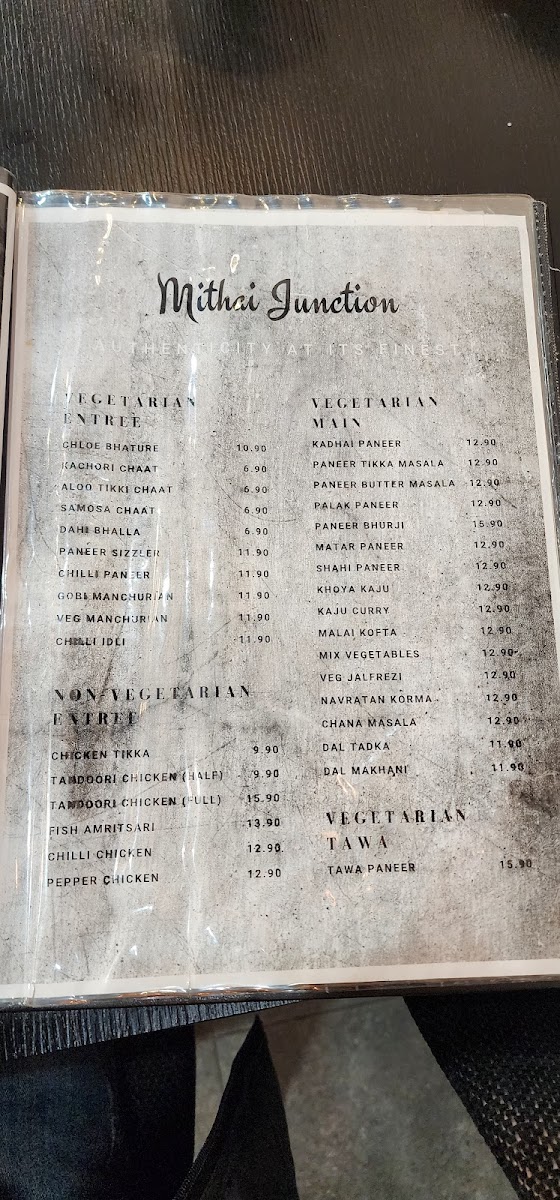 Mithai Junction
AUTHENTICITY AT ITS FINEST
VEGETARIAN
ENTREE
CHLOE BHATURE 10.90
KACHORI CHAAT 6.90
ALOO TIKKI CHAAT 6.90
SAMOSA CHAAT 6.90
DAHI BHALLA 6.90
PANEER SIZZLER 11.90
CHILLI PANEER 11.90
GOBI MANCHURIAN 11.90
VEG MANCHURIAN 11.90
CHILLI IDLI 11.90
NON-VEGETARIAN
ENTREE
CHICKEN TIKKA 9.90
TANDOORI CHICKEN (HALF) 9.90
TANDOORI CHICKEN (FULL) 15.90
FISH AMRITSARI 13.90
CHILLI CHICKEN 12.90
PEPPER CHICKEN 12.90
VEGETARIAN
MAIN
KADHAI PANEER 12.90
PANEER TIKKA MASALA 12.90
PANEER BUTTER MASALA 12.90
PALAK PANEER 12.90
PANEER BHURJI 15.90
MATAR PANEER 12.90
SHAHI PANEER 12.90
KHOYA KAJU 12.90
KAJU CURRY 12.90
MALAI KOFTA 12.90
MIX VEGETABLES 12.90
VEG JALFREZI 12.90
NAVRATAN KORMA 12.90
CHANA MASALA 12.90
DAL TADKA 11.90
DAL MAKHANI 11.90
VEGETARIAN
TAWA
TAWA PANEER 15.90